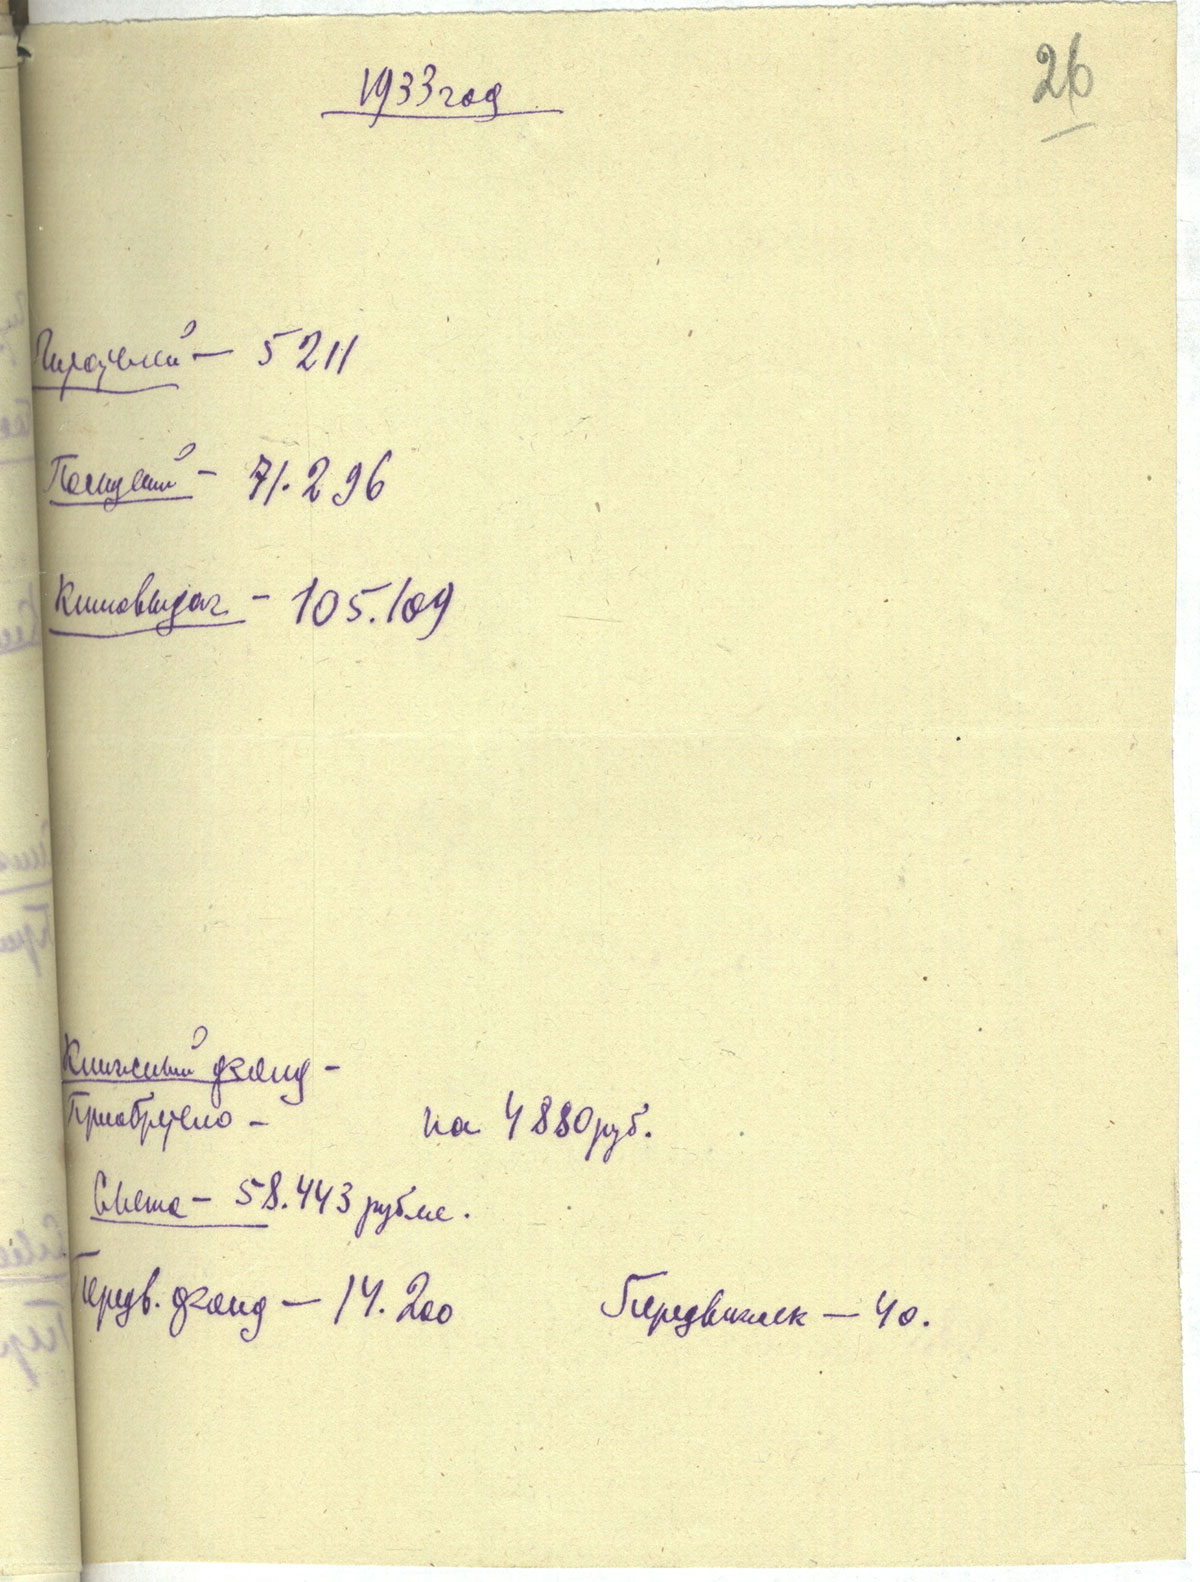 26
1933 год
Читателей — 5211
Посещений — 71.296
Книговыдач — 105.109
Книжный фонд —
Приобретено — на 4880 руб.
Смета — 58.443 рубля.
Передв. фонд — 14.200 Передвижек — 40.